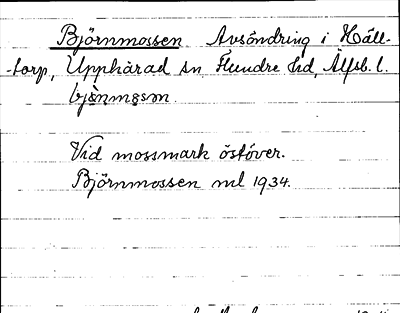 Björnmossen Avsöndring i Häll-
-torp, Upphärad sn Flundre hd, Älfsb. l.
bjò̱nmɷsən
Vid mossmark östöver.
Björnmossen ml 1934.